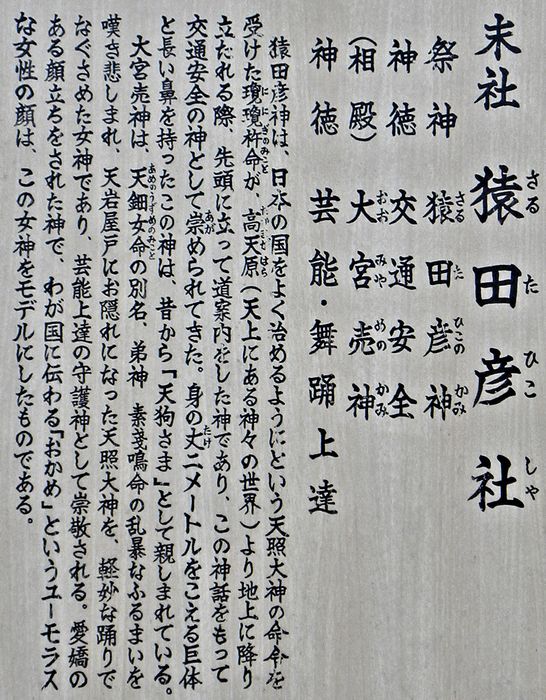 末社 猿田彦社
さる た ひこ しゃ
祭神 猿田彦神
さる た ひこの かみ
神徳 交通安全
(相殿) 大宮売神
おお みや めの かみ
神徳 芸能・舞踊上達
猿田彦神は、日本の国をよく治めるようにという天照大神の命令を
受けた瓊瓊杵命が、高天原(天上にある神々の世界)より地上に降り
ににぎのみこと
立たれる際、先頭に立って道案内をした神であり、この神話をもって
交通安全の神として崇められてきた。身の丈二メートルをこえる巨体
あが たけ
と長い鼻を持ったこの神は、昔から「天狗さま」として親しまれている。
大宮売神は、天鈿女命の別名、弟神 素戔鳴命の乱暴なふるまいを
あめのうずめのみこと
嘆き悲しまれ、天岩屋戸にお隠れになった天照大神を、軽妙な踊りで
なぐさめた女神であり、芸能上達の守護神として崇敬される。愛嬌の
ある顔立ちをされた神で、わが国に伝わる「おかめ」というユーモラス
な女性の顔は、この女神をモデルにしたものである。